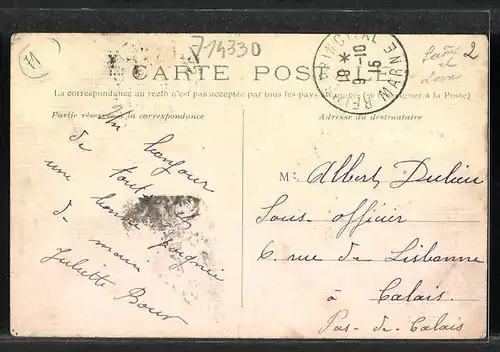 11
J14330
CARTE POSTALE
La correspondance au recto n'est pas acceptée par tous les pays étrangers (se renseigner à la Poste)
Partie réservée à la correspondance
Adresse du destinataire
18 * 9-10 15
MARNE
2
Un bonjour
de tout
une bonne poignée
de main
Juliette Bour
M: Albert Dulieu
Sous-officier
6. rue de Lisbonne
à Calais.
Pas-de-Calais